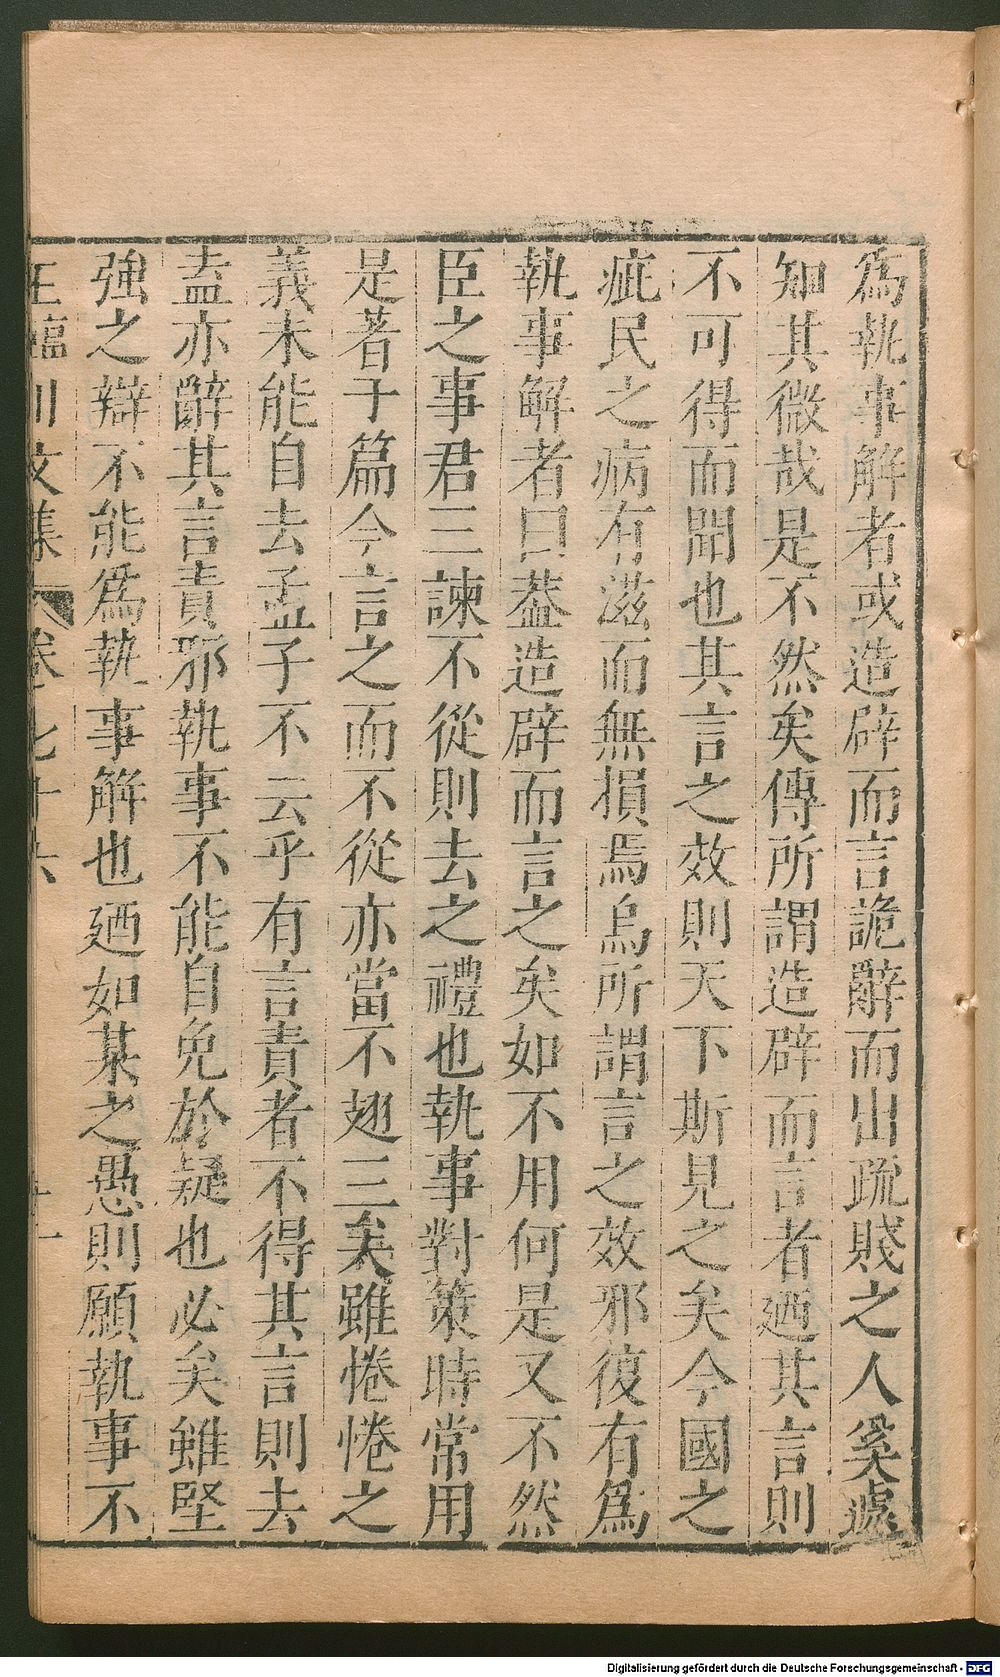 爲執事解者或造辟而言詭辭而出疏賤之人奚遽
知其微哉是不然矣傳所謂造辟而言者廼其言則
不可得而聞也其言之效則天下斯見之矣今國之
疵民之病有滋而無損焉烏所謂言之效邪彼有爲
執事解者曰蓋造辟而言之矣如不用何是又不然
臣之事君三諫不從則去之禮也執事對策時常用
是著于篇今言之而不從亦當不翅三矣雖惓惓之
義未能自去孟子不云乎有言責者不得其言則去
盍亦辭其言責邪執事不能自免於疑也必矣雖堅
強之辯不能爲執事解也廼如某之愚則願執事不
王臨川文集 卷七十六 十一
Digitalisierung gefördert durch die Deutsche Forschungsgemeinschaft - DFG